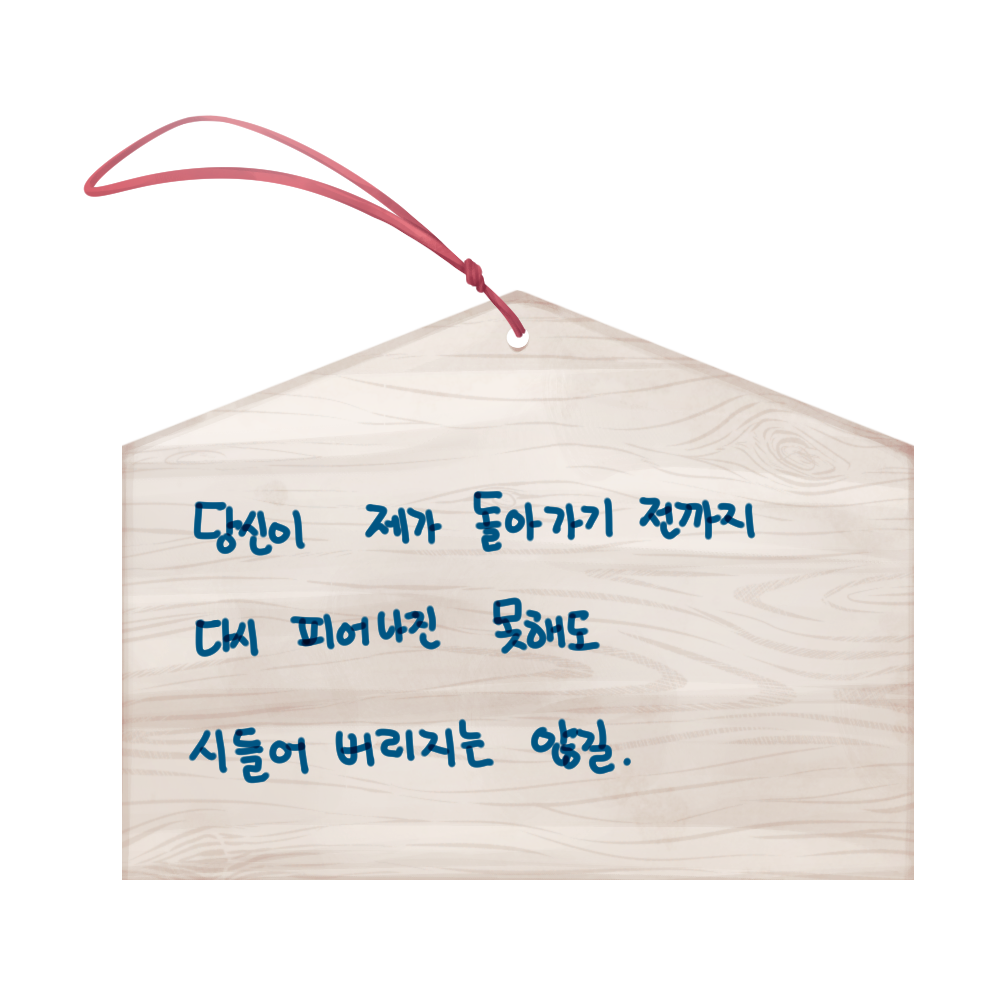 당신이 제가 돌아가기 전까지
다시 피어나진 못해도
시들어 버리지는 않길.